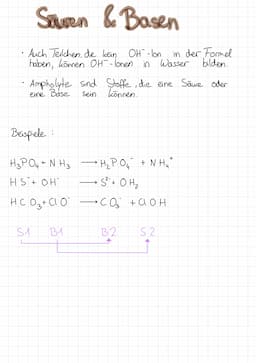 Säuren & Basen
· Auch Teilchen, die kein OH⁻-Ion in der Formel
haben, können OH⁻-Ionen in Wasser bilden.
· Ampholyte sind Stoffe, die eine Säure oder
eine Base sein können.
Beispiele:
H₃PO₄ + NH₃ → H₂PO₄⁻ + NH₄⁺
HS⁻ + OH⁻ → S²⁻ + OH₂
HCO₃⁻ + ClO⁻ → CO₃²⁻ + ClOH
S1 B1 B2 S2